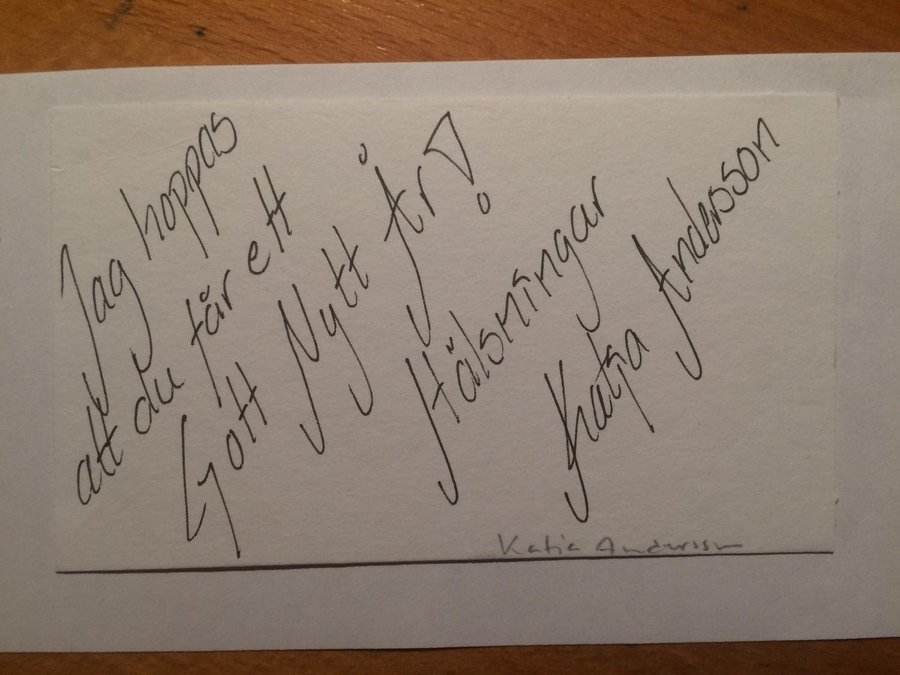 Jag hoppas
att du får ett
Gott Nytt År!
Hälsningar
Katja Andersson
Katja Andersson